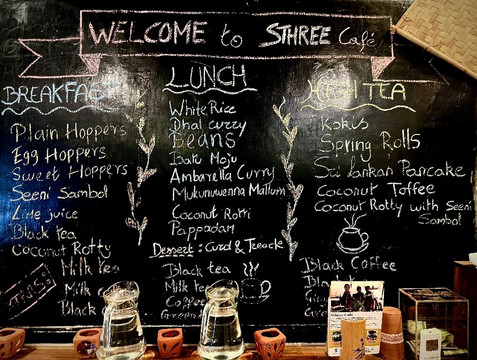 WELCOME to STHREE Café
BREAKFAST
Plain Hoppers
Egg Hoppers
Sweet Hoppers
Seeni Sambol
Lime juice
Black tea
Coconut Rotty
Milk tea
Milk
Black
LUNCH
White Rice
Dhal curry
Beans
Batu Moju
Ambarella Curry
Mukunuwenna Mallum
Coconut Rotti
Pappadan
Dessert: Curd & Treacle
Black tea
Milk tea
Coffee
Green
HIGH TEA
Kokis
Spring Rolls
Sri lankan Pancake
Coconut Toffee
Coconut Rotty with Seeni
Sambol
Black Coffee